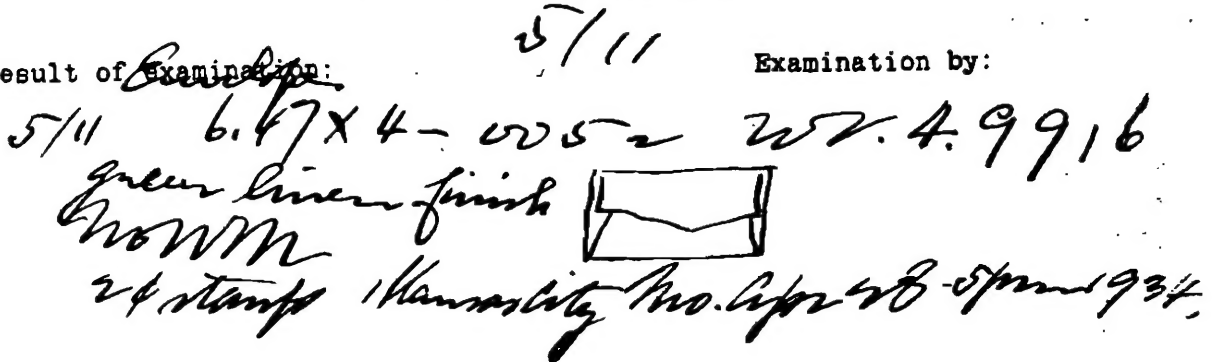 5/11
esult of examination: Examination by:
Envelope
5/11 6.47 X 4 - 005 2 WT. 4.9916
green linen finish
No WM
2¢ stamp Kansas City Mo. Apr 28 - 5pm 1934.